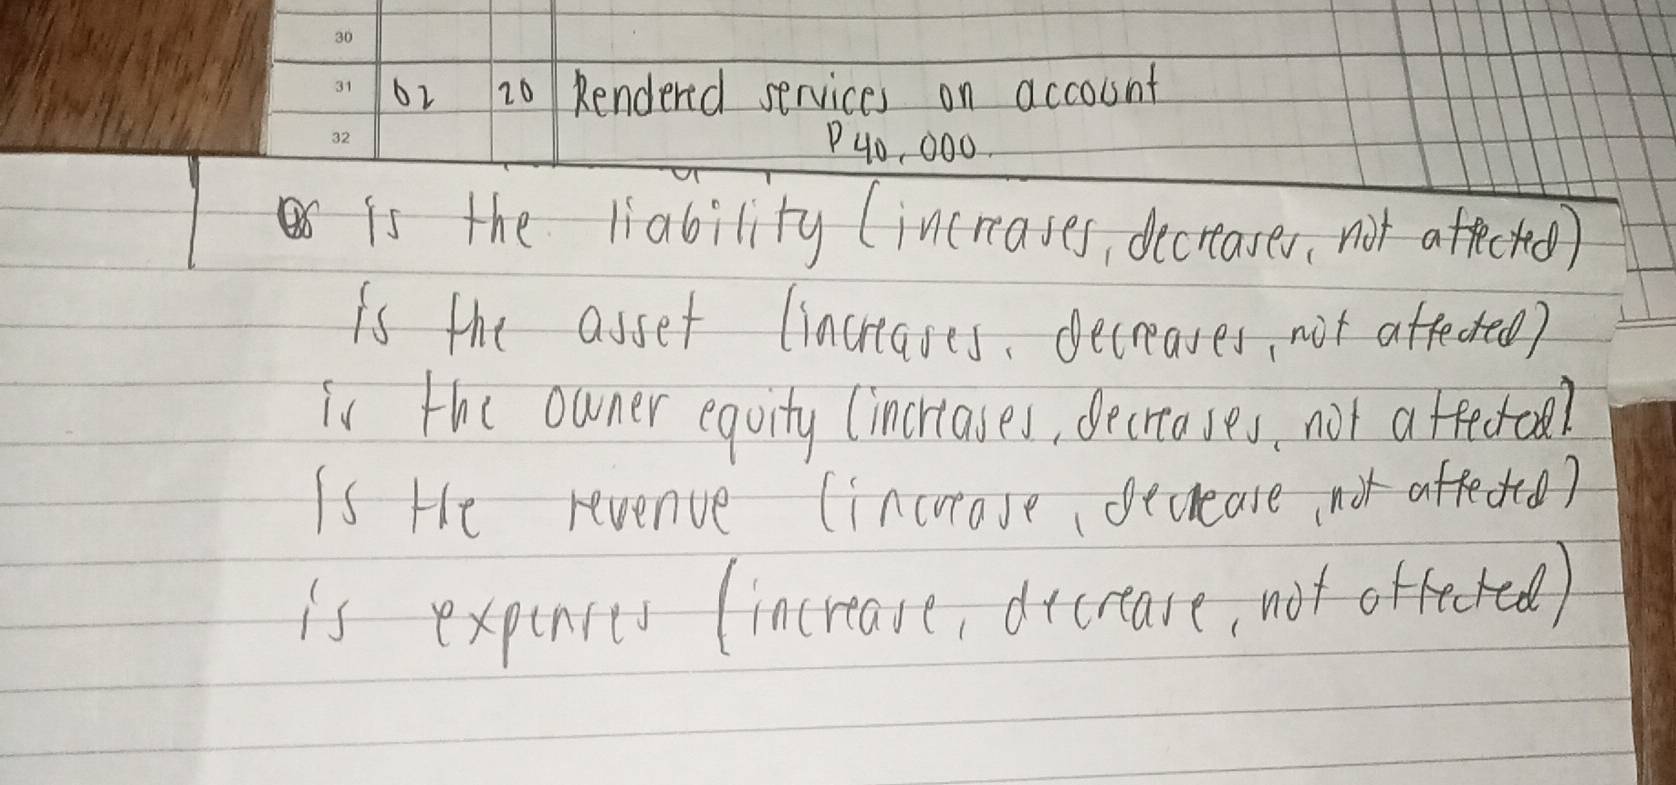 30
31 02 20 Rendered services on account
32 P40,000.
is the liability (increases, decreases, not affected)
is the asset (increases, decreases, not affected)
is the owner equity (increases, decreases, not affected)
Is the revenue (increase, decrease, not affected)
is expenses (increase, decrease, not affected)